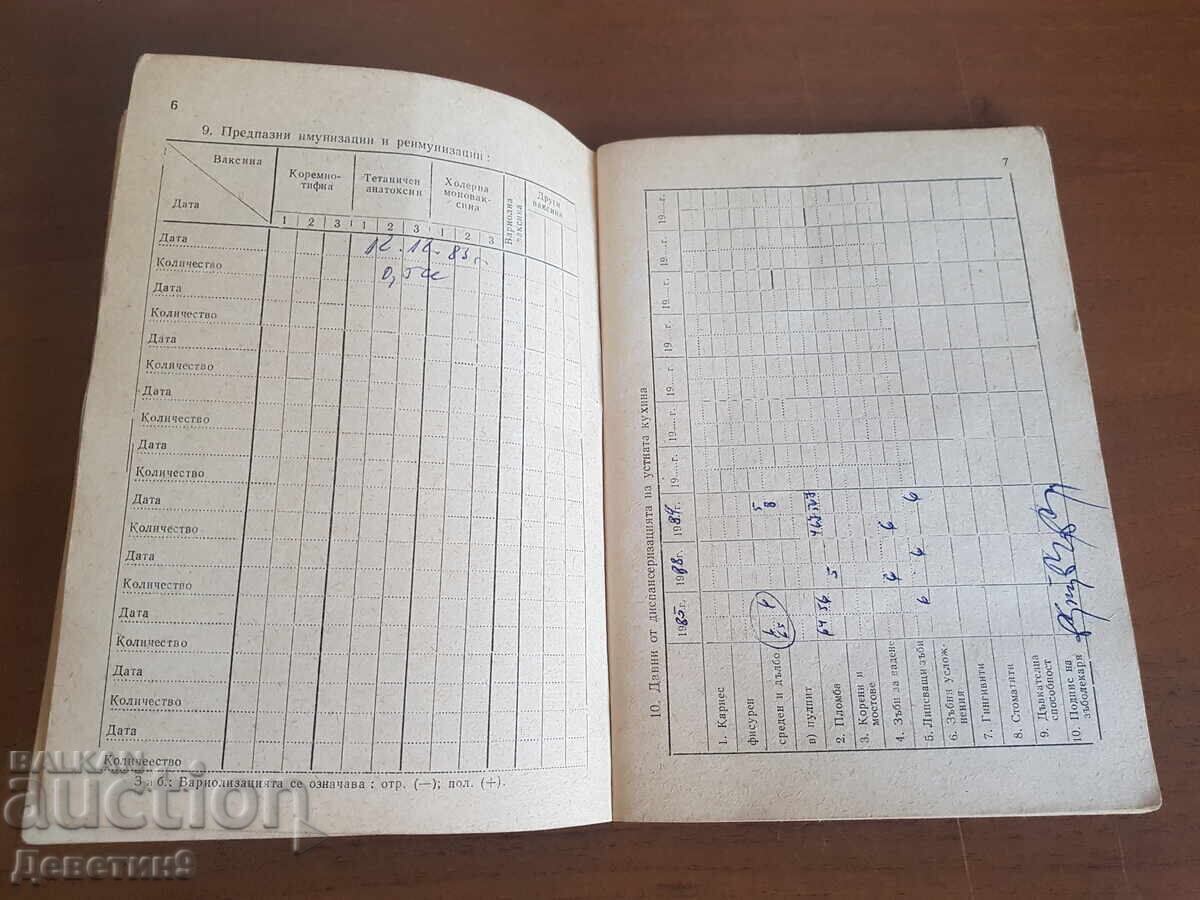 6
9. Предпазни имунизации и реимунизации:
Ваксина
Дата
Коремно-
тифна
Тетаничен
анатоксин
Холерна
моновак-
сина
Вариолна
ваксина
Други
ваксина
1 2 3 1 2 3 1 2 3
Дата 12.12.83 г.
Количество 0,5
Дата
Количество
Дата
Количество
Дата
Количество
Дата
Количество
Дата
Количество
Дата
Количество
Дата
Количество
Дата
Количество
Дата
Количеество
Заб.: Вариолизацията се означава: отр. (—); пол. (+).
7
10. Данни от диспансеризацията на устната кухина
19 г. 1988 г. 19 г. 19....г. 19....г. 19....г. 19....г. 19....г. 19....г.
1. Кариес
фисурен
среден и дълбо
в) пулпит
2. Пломба 5
3. Корени и
мостове
4. Зъби за вадене 6 6
5. Липсващи зъби 6 6 6
6. Зъбни услож-
нения
7. Гингивити
8. Стоматити
9. Дъвкателна
способност
10. Подпис на
зъболекаря
BALKAN
auction
Деветин9